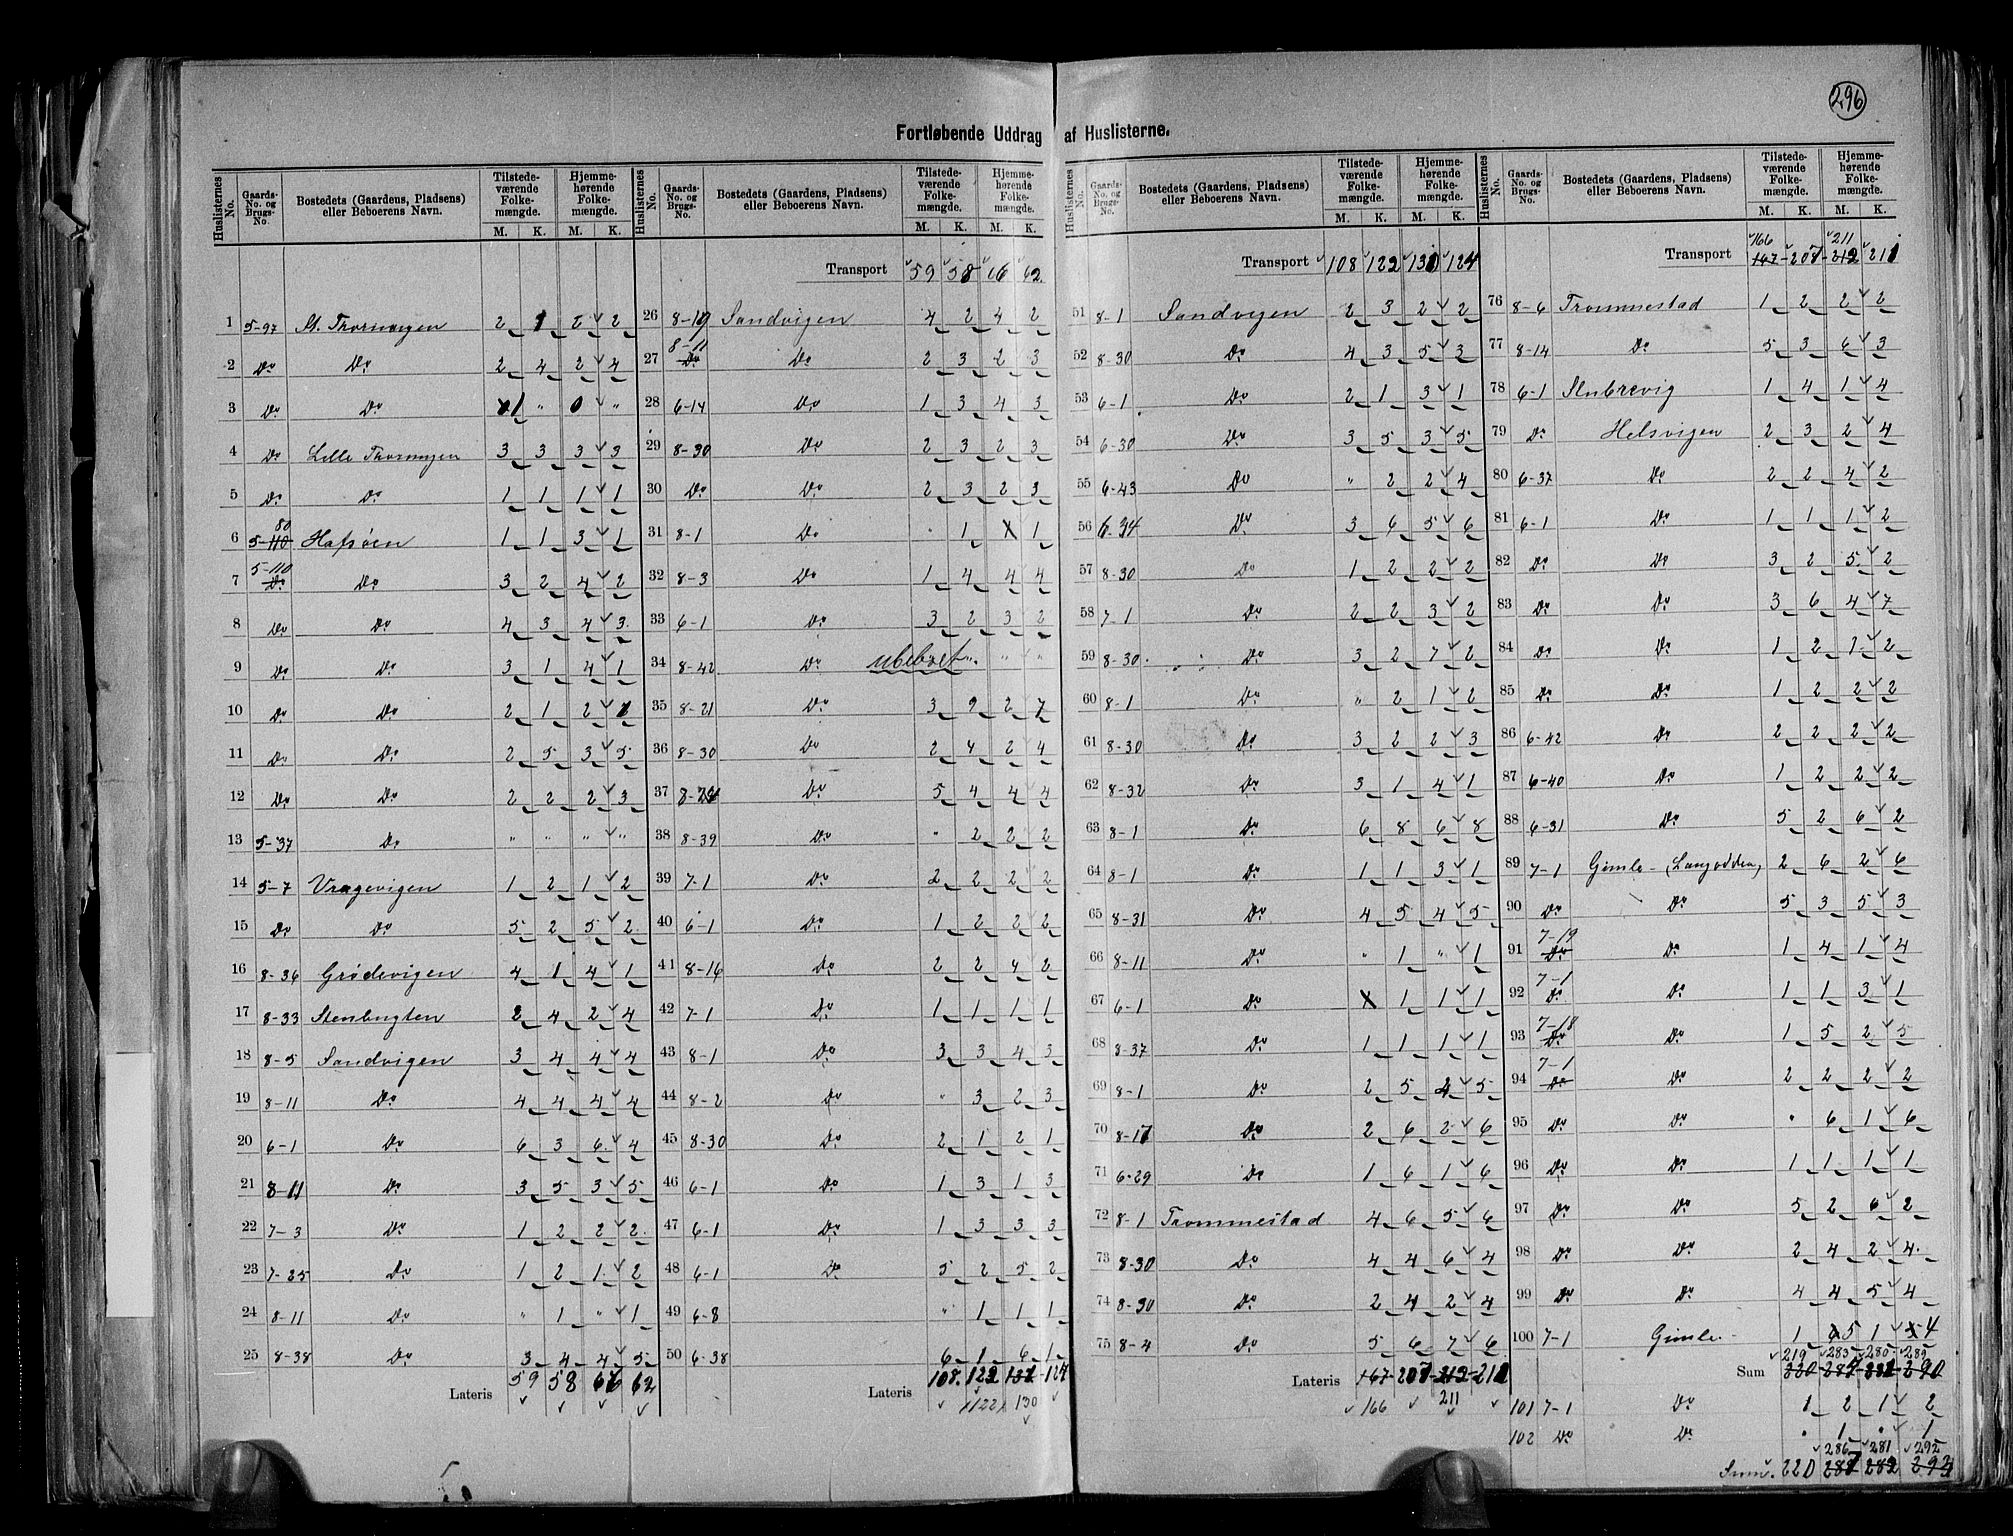 296
Fortløbende Uddrag af Huslisterne.
Huslisternes No. Gaards-No. og Brugs-No. Bostedets (Gaardens, Pladsens) eller Beboerens Navn. Tilstedeværende Folkemængde. M. K. Hjemmehørende Folkemængde. M. K.
1 5-97 St. Thorsvigen 2 1 2 2
2 Do Do 2 4 2 4
3 Do Do 1 " 0 "
4 Do Lille Thorsvigen 3 3 3 3
5 Do Do 1 1 1 1
6 5-80 Hafsøen 1 1 3 1
7 5-110 Do 3 2 4 2
8 Do Do 4 3 4 3
9 Do Do 3 1 4 1
10 Do Do 2 1 2 1
11 Do Do 2 5 3 5
12 Do Do 2 2 2 3
13 5-37 Do " " " "
14 5-7 Vragevigen 1 2 1 2
15 Do Do 5 2 5 2
16 8-36 Grødevigen 4 1 4 1
17 8-33 Stenbugten 2 4 2 4
18 8-5 Sandvigen 3 4 4 4
19 8-11 Do 4 4 4 4
20 6-1 Do 6 3 6 4
21 8-11 Do 3 5 3 5
22 7-3 Do 1 2 2 2
23 7-25 Do 1 2 1 2
24 8-11 Do " 1 " 1
25 8-38 Do 3 4 4 5
Lateris 59 58 66 62
Transport 59 58 66 62
26 8-19 Sandvigen 4 2 4 2
27 8-11 Do 2 3 2 3
28 6-14 Do 1 3 4 3
29 8-30 Do 2 3 2 3
30 Do Do 2 3 2 3
31 8-1 Do " 1 X 1
32 8-3 Do 1 4 4 4
33 6-1 Do 3 2 3 2
34 8-42 Do ubeboet " " "
35 8-21 Do 3 9 2 7
36 8-30 Do 2 4 2 4
37 Do 5 4 4 4
38 8-39 Do " 2 2 2
39 7-1 Do 2 2 2 2
40 6-1 Do 1 2 2 2
41 8-16 Do 2 2 4 2
42 7-1 Do 1 1 1 1
43 8-1 Do 3 3 4 3
44 8-2 Do " 3 2 3
45 8-30 Do 2 1 2 1
46 6-1 Do 1 3 1 3
47 6-1 Do 1 3 3 3
48 6-1 Do 5 2 5 2
49 6-8 " 1 1 1
50 6-38 6 1 6 1
Lateris 108 122 131 124
122 130
Transport 108 122 130 124
51 8-1 Sandvigen 2 3 2 2
52 8-30 Do 4 3 5 3
53 6-1 Do 2 1 3 1
54 6-30 Do 3 5 3 5
55 6-43 Do " 2 2 4
56 6-34 Do 3 6 5 6
57 8-30 Do 1 2 2 2
58 7-1 Do 2 2 3 2
59 8-30 Do 3 2 7 2
60 8-1 Do " 2 1 2
61 8-30 Do 3 2 2 3
62 8-32 Do 3 1 4 1
63 8-1 Do 6 8 6 8
64 8-1 Do 1 1 3 1
65 8-31 Do 4 5 4 5
66 8-11 Do " 1 " 1
67 6-1 Do X 1 1 1
68 8-37 Do 1 1 1 1
69 8-1 Do 2 5 4 5
70 8-17 Do 2 6 2 6
71 6-29 Do 1 6 1 6
72 8-1 Trommestad 4 6 5 6
73 8-30 Do 4 4 6 4
74 8-30 Do 2 4 2 4
75 8-4 Do 5 6 7 6
Lateris 167 207 212 211
166 211
Transport 167 207 212 211
166 211
76 8-6 Trommestad 1 2 2 2
77 8-14 Do 5 3 6 3
78 6-1 Stubrevig 1 4 1 4
79 Do Helsvigen 2 3 2 4
80 6-37 Do 2 2 4 2
81 6-1 Do 1 1 1 2
82 Do Do 3 2 5 2
83 Do Do 3 6 4 7
84 Do Do 1 2 1 2
85 Do Do 1 2 2 2
86 6-42 Do 2 2 2 2
87 6-40 Do 1 2 2 2
88 6-31 Do 5 2 6 2
89 7-1 Gimle (Langodden) 2 6 2 6
90 Do Do 5 3 5 3
91 7-19 Do 1 4 1 4
92 7-1 Do 1 1 3 1
93 7-18 Do 1 5 2 5
94 7-1 Do 2 2 2 2
95 Do Do " 6 1 6
96 Do Do 1 1 1 1
97 Do Do 5 2 6 2
98 Do Do 2 4 2 4
99 Do Do 4 4 5 4
100 7-1 Gimle 1 5 1 4
219 283 280 289
Sum 220 284 281 290
101 7-1 Do 1 2 1 2
102 Do Do " 1 " 1
286 281 292
Sum 220 287 282 293